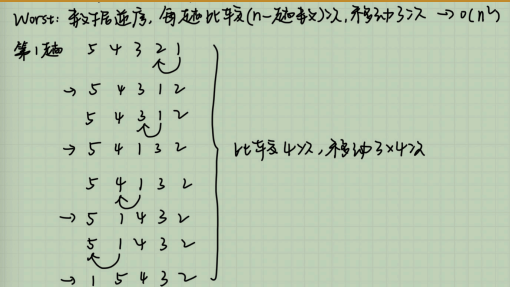 Worst: 数据逆序, 每趟比较(n-趟数)次, 移动3次 → O(n²)
第1趟 5 4 3 2 1
→ 5 4 3 1 2
5 4 3 1 2
→ 5 4 1 3 2
5 4 1 3 2
→ 5 1 4 3 2
比较4次, 移动3×4次
5 1 4 3 2
→ 1 5 4 3 2